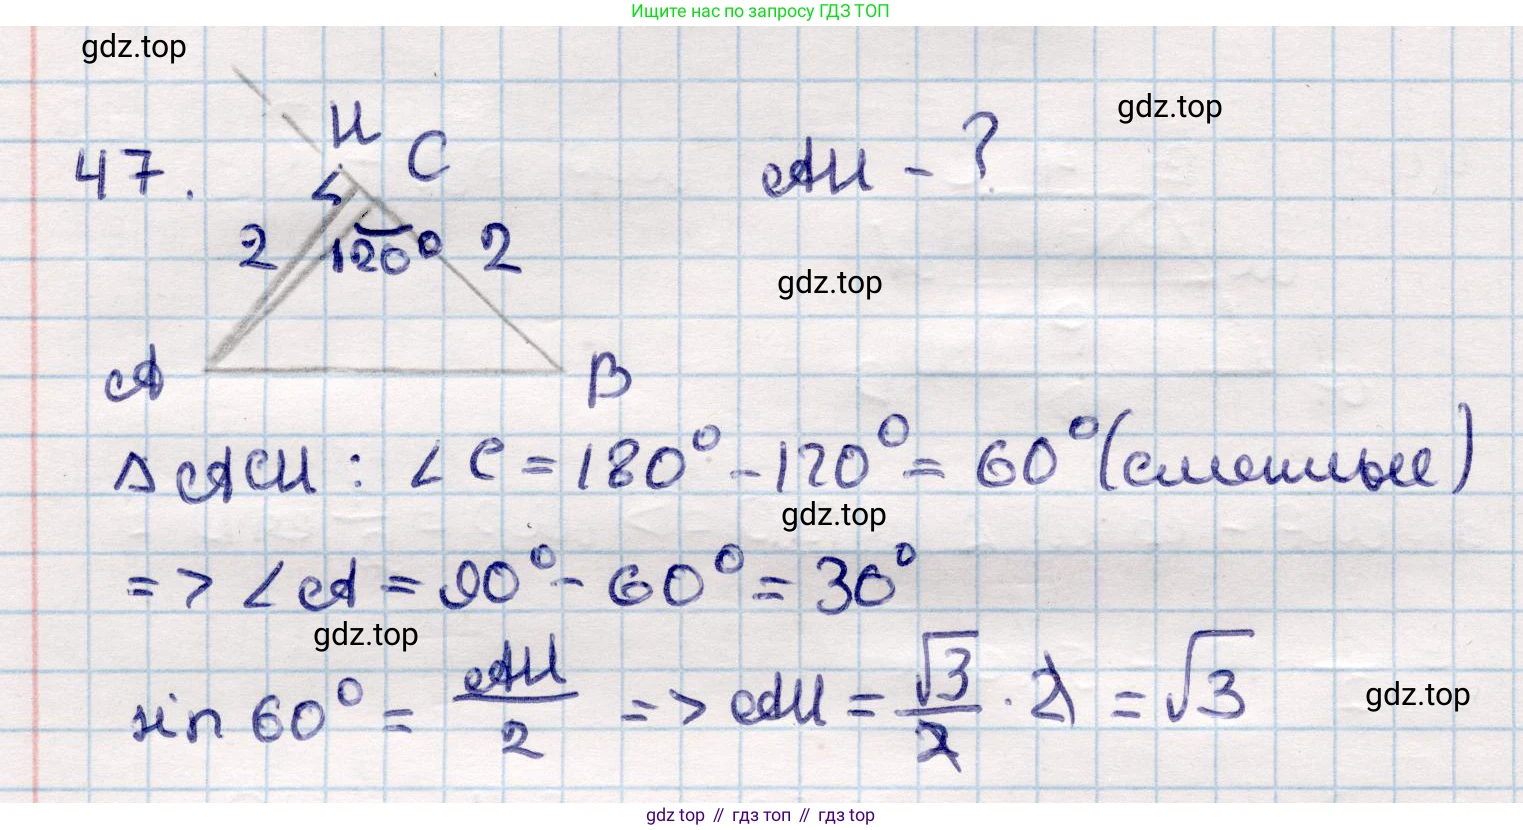 Ищите нас по запросу ГДЗ ТОП
gdz.top
gdz.top
47.
H
C
AH - ?
2
120°
2
gdz.top
A
B
Δ ACH : ∠ C = 180° - 120° = 60° (смежные)
gdz.top
=> ∠ A = 90° - 60° = 30°
gdz.top
sin 60° = AH/2 => AH = √3/2 · 2 = √3
gdz.top
gdz top // гдз топ // гдз top